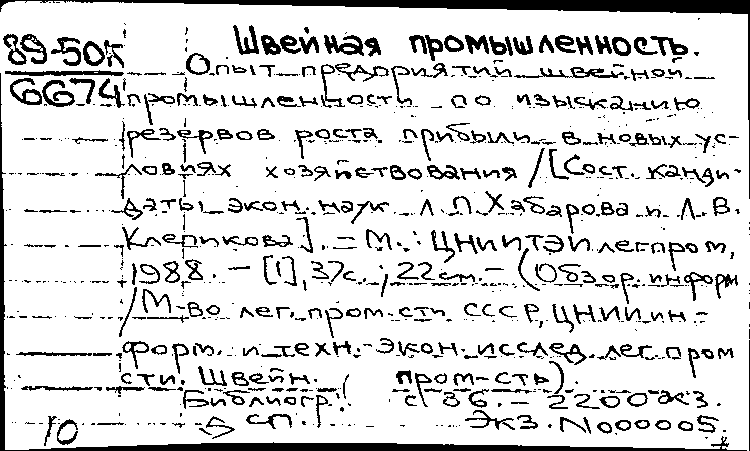 Швейная промышленность.
89-50к
6674
Опыт предприятий швейной
промышленности по изысканию
резервов роста прибыли в новых ус-
ловиях хозяйствования / [Сост. канди-
даты экон. наук Л.П. Хабарова и Л.В.
Клепикова]. - М. : ЦНИИТЭИлегпром,
1988. - [1], 37с. ; 22см. - (Обзор. информ
/ М-во лег. пром-сти СССР, ЦНИИ ин-
форм. и техн.-экон. исслед. лег. пром
сти. Швейн. пром-сть).
Библиогр.: с 36. - 2200экз.
сп. Экз. N000005.
10